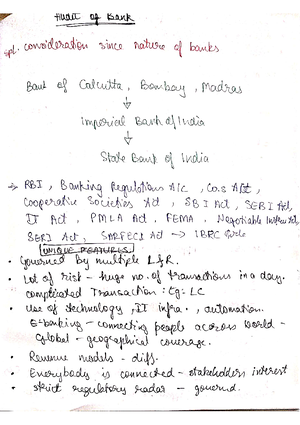 Audit of Bank
spl. consideration since nature of banks
Bank of Calcutta, Bombay, Madras
Imperial Bank of India
State Bank of India
→ RBI, Banking Regulations A/c, Co.s Act,
Cooperative Societies Act, SBI Act, SEBI Act,
IT Act, PMLA Act, FEMA, Negotiable Act,
Act, SARFESI Act →
UNIQUE FEATURES
• Governed by multiple L&R.
• Lot of risk - huge no. of transactions in a day.
complicated Transaction: Eg: LC
• Use of technology, IT infra., automation.
E-banking - connecting people across world -
Global - geographical coverage.
• Revenue models - diff.
• Everybody is connected - stakeholders interest
• strict regulatory radar - governed.